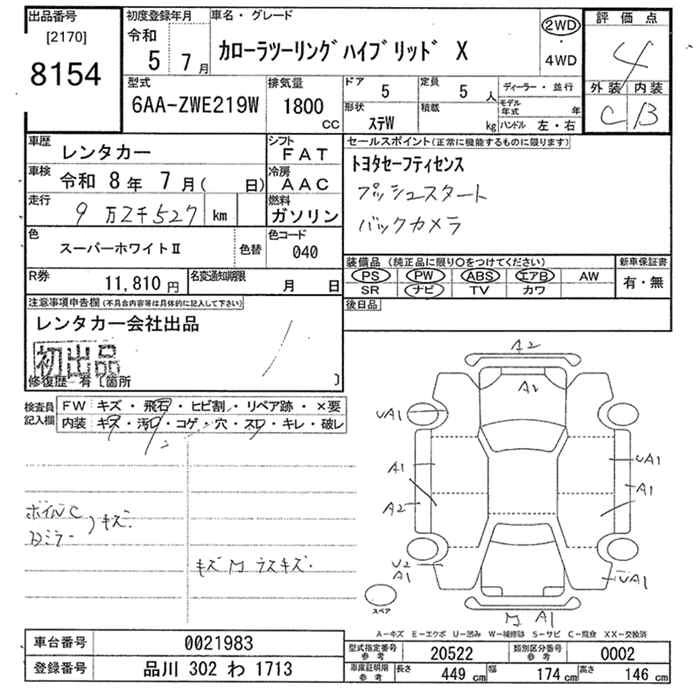 出品番号
[2170]
8154
初度登録年月
令和
5 7月
車名・グレード
カローラツーリングハイブリッド X
2WD
4WD
評価点
4
外装 内装
C B
型式
6AA-ZWE219W
排気量
1800
cc
ドア
5
定員
5人
形状
ステW
積載
kg
ディーラー・並行
モデル年式 年
ハンドル 左・右
車歴
レンタカー
シフト
FAT
車検
令和 8年 7月( 日)
冷房
AAC
走行
9万2千527 km
燃料
ガソリン
色
スーパーホワイトⅡ
色替
色コード
040
R券
11,810円
名変通知期限
月 日
セールスポイント(正常に機能するものに限ります)
トヨタセーフティセンス
プッシュスタート
バックカメラ
装備品 (純正品に限り○をつけてください)
PS PW ABS エアB AW
SR ナビ TV カワ
新車保証書
有・無
後日品
注意事項申告欄(不具合内容等は具体的に記入して下さい)
レンタカー会社出品
初出品
修復歴 有 〔箇所 〕
検査員記入欄
FW キズ・飛石・ヒビ割・リペア跡・×要
内装 キズ・汚れ・コゲ・穴・スレ・キレ・破レ
ホイルC
Dミラー
キズ
A2
A1
UA1
A1
A2
UA1
A1
U2
A1
UA1
A1
スペア
A－キズ E－エクボ U－凹み W－補修跡 S－サビ C－腐食 XX－交換済
車台番号
0021983
登録番号
品川 302 わ 1713
型式指定番号
参考
20522
類別区分番号
参考
0002
車庫証明用
参考
長さ
449 cm
幅
174 cm
高さ
146 cm